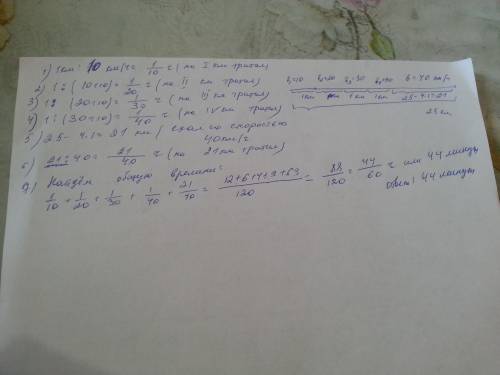 1) 1 км : 10 км/ч = 1/10 ч (на I км тратил)
2) 1 : (10+10) = 1/20 ч (на II км тратил)
3) 1 : (20+10) = 1/30 ч (на III км тратил)
4) 1 : (30+10) = 1/40 ч (на IV км тратил)
5) 25 - 4·1 = 21 км / ехал со скоростью
40 км/ч
6) 21 : 40 = 21/40 ч (на 21 км тратил)
7) Найдём общую времени:
1/10 + 1/20 + 1/30 + 1/40 + 21/40 = 12+6+4+3+63/120 = 88/120 = 44/60 ч или 44 минуты
ответ: 44 минуты
=10 =20 =30 =40 =40 км/ч
1км км 1км 1км 25-4·1=21
25 км